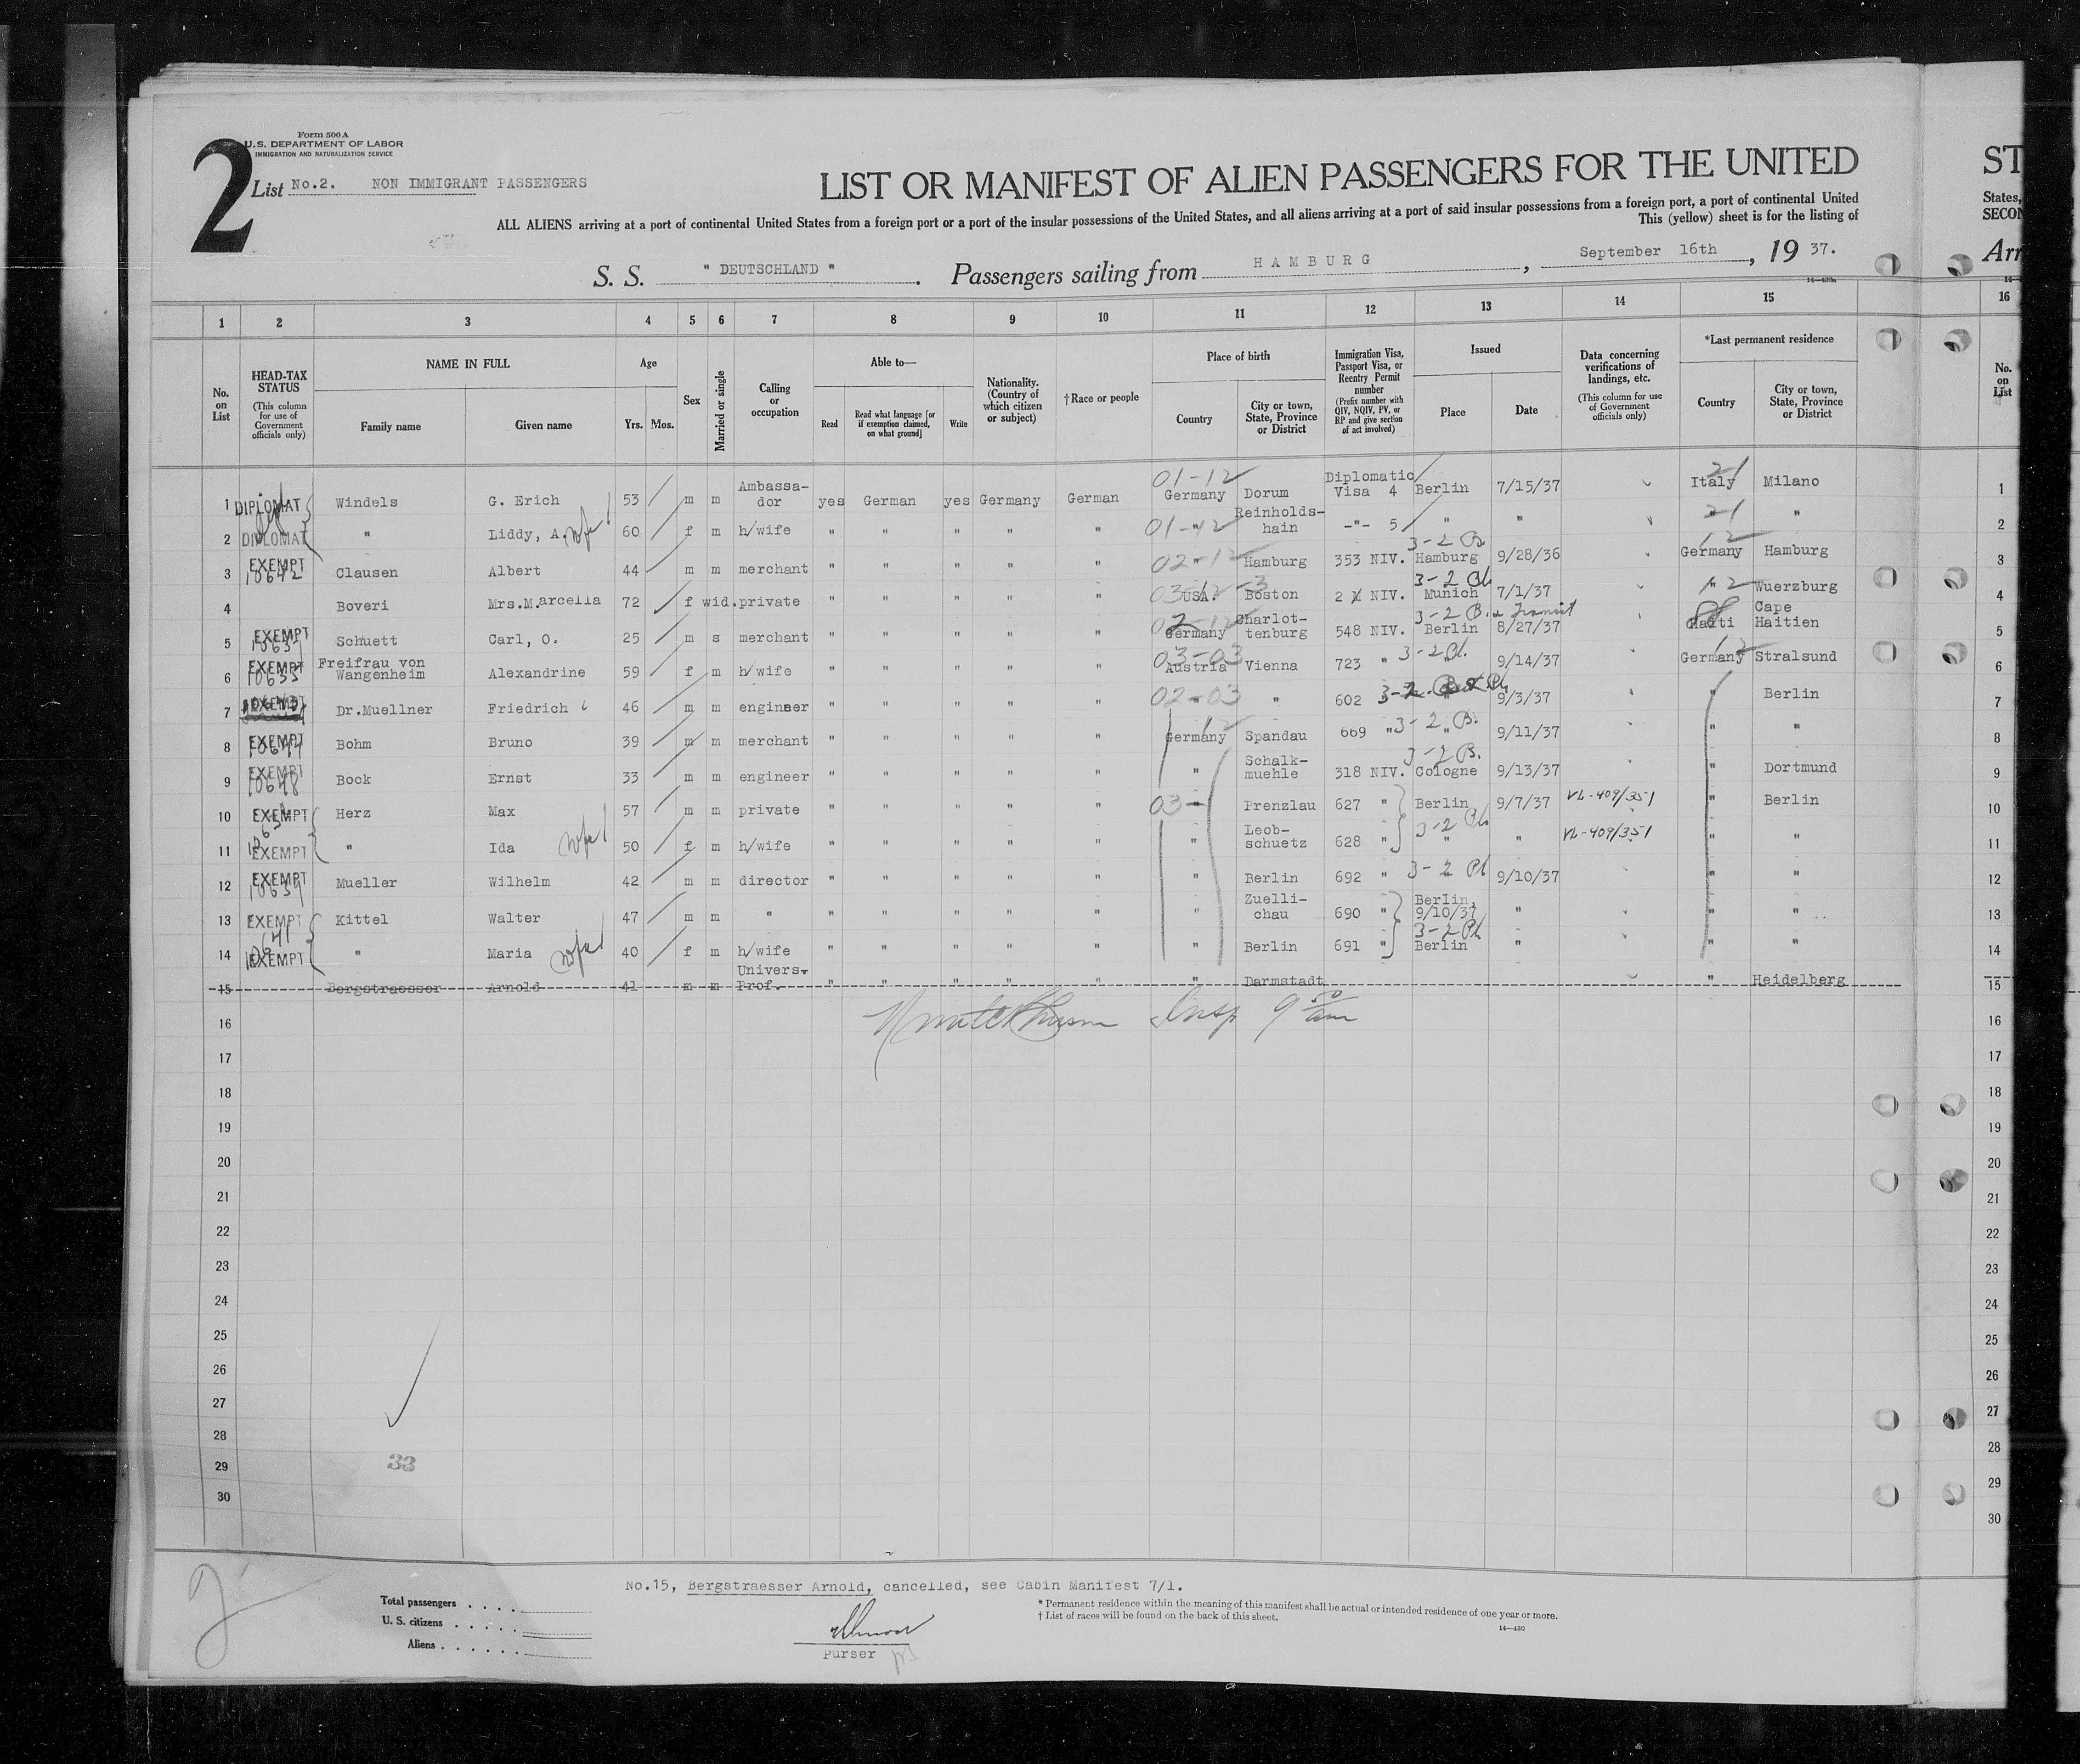 Form 500 A
U.S. DEPARTMENT OF LABOR
IMMIGRATION AND NATURALIZATION SERVICE
2
List No.2. NON IMMIGRANT PASSENGERS
LIST OR MANIFEST OF ALIEN PASSENGERS FOR THE UNITED
ST
ALL ALIENS arriving at a port of continental United States from a foreign port or a port of the insular possessions of the United States, and all aliens arriving at a port of said insular possessions from a foreign port, a port of continental United
States,
This (yellow) sheet is for the listing of
SECON
S. S. " DEUTSCHLAND ". Passengers sailing from HAMBURG, September 16th, 19 37.
Arr
1 2 3 4 5 6 7 8 9 10 11 12 13 14 15 16
No. on List
HEAD-TAX STATUS (This column for use of Government officials only)
NAME IN FULL
Family name Given name
Age
Yrs. Mos.
Sex
Married or single
Calling or occupation
Able to—
Read Read what language [or if exemption claimed, on what ground] Write
Nationality. (Country of which citizen or subject)
†Race or people
Place of birth
Country City or town, State, Province or District
Immigration Visa, Passport Visa, or Reentry Permit number (Prefix number with QIV, NQIV, PV, or RP and give section of act involved)
Issued
Place Date
Data concerning verifications of landings, etc. (This column for use of Government officials only)
*Last permanent residence
Country City or town, State, Province or District
No. on List
1 DIPLOMAT Windels G. Erich 53 m m Ambassa-dor yes German yes Germany German 01-12 Germany Dorum Diplomatic Visa 4 Berlin 7/15/37 21 Italy Milano 1
2 DIPLOMAT " Liddy, A. wife 60 f m h/wife " " " " " 01-12 " Reinholds-hain -"- 5 " " 21 " " 2
3 EXEMPT 10642 Clausen Albert 44 m m merchant " " " " " 02-12 " Hamburg 353 NIV. 3-2 B Hamburg 9/28/36 12 Germany Hamburg 3
4 Boveri Mrs.Marcella 72 f wid. private " " " " " USA. Boston 2 NIV. 3-2 Munich 7/1/37 " 12 Wuerzburg 4
5 EXEMPT Schuett Carl, O. 25 m s merchant " " " " " Germany Charlot-tenburg 548 NIV. 3-2 B. & Transit Berlin 8/27/37 Haiti Cape Haitien 5
6 EXEMPT 10635 Freifrau von Wangenheim Alexandrine 59 f m h/wife " " " " " 03-03 Austria Vienna 723 " 3-2 Pl. " 9/14/37 12 Germany Stralsund 6
7 Dr.Muellner Friedrich 46 m m engineer " " " " " 02-03 " " 602 3-2 9/3/37 " Berlin 7
8 EXEMPT Bohm Bruno 39 m m merchant " " " " " 12 Germany Spandau 669 " 3-2 B. " 9/11/37 " " 8
9 EXEMPT 10648 Bock Ernst 33 m m engineer " " " " " " Schalk-muehle 318 NIV. 3-2 B. Cologne 9/13/37 " Dortmund 9
10 EXEMPT Herz Max 57 m m private " " " " " 03- " Prenzlau 627 " Berlin 9/7/37 VL-409/351 " Berlin 10
11 EXEMPT " Ida wife 50 f m h/wife " " " " " " Leob-schuetz 628 " 3-2 Pl " " VL-409/351 " " 11
12 EXEMPT Mueller Wilhelm 42 m m director " " " " " " Berlin 692 " 3-2 Pl 9/10/37 " " 12
13 EXEMPT Kittel Walter 47 m m " " " " " " " Zuelli-chau 690 " Berlin, 9/10/37 " " " 13
14 EXEMPT " Maria wife 40 f m h/wife " " " " " " Berlin 691 " 3-2 Pl Berlin " " " 14
15 Bergstraesser Arnold 41 m m Univers.-Prof. " " " " " " Darmstadt " Heidelberg 15
16 Insp 9 50 am 16
17 17
18 18
19 19
20 20
21 21
22 22
23 23
24 24
25 25
26 26
27 27
28 28
29 33 29
30 30
No.15, Bergstraesser Arnold, cancelled, see Cabin Manifest 7/1.
Total passengers
U. S. citizens
Aliens
Purser
* Permanent residence within the meaning of this manifest shall be actual or intended residence of one year or more.
† List of races will be found on the back of this sheet.
14—430